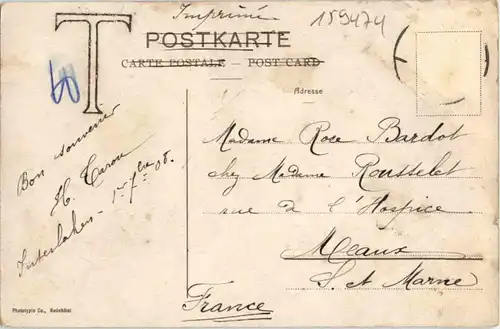 Imprimé
159474
T
POSTKARTE
CARTE POSTALE – POST CARD
Adresse
60
Bon souvenir
H. Caron
Interlaken - 1er 7bre 08.
Madame Rose Bardot
chez Madame Rousselet
rue de l'Hospice
Meaux
S. et Marne
France
Phototypie Co., Neuchâtel